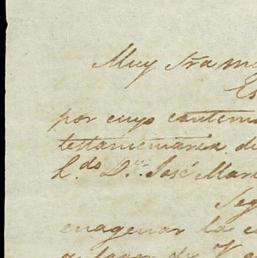 Muy Sra m
Es
por cuyo conteni
testamentaria d
L.do D.n José Mar
Seg
enagenar la c